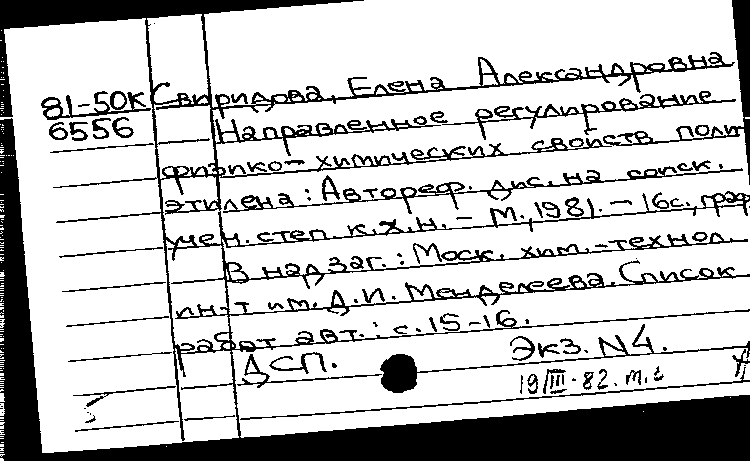 81-50К Свиридова, Елена Александровна
6556 Направленное регулирование
физико-химических свойств поли
этилена: Автореф. дис. на соиск.
учен. степ. к.х.н. - М., 1981. - 16с., граф
В надзаг.: Моск. хим.-технол.
ин-т им. Д.И. Менделеева. Список
работ авт.: с. 15-16.
ДСП. Экз. N4.
19/III-82. м.